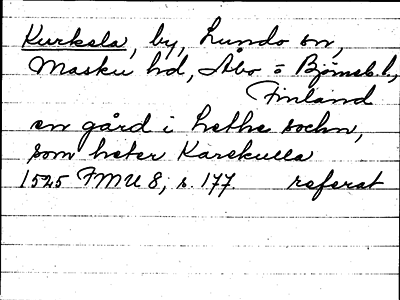 Kurksla, by, Lundo sn,
Masku hd, Åbo = Björneb. l.,
Finland
en gård i Lethe sochn,
som heter Karskulla
1525 FMU 8, s. 177 referat